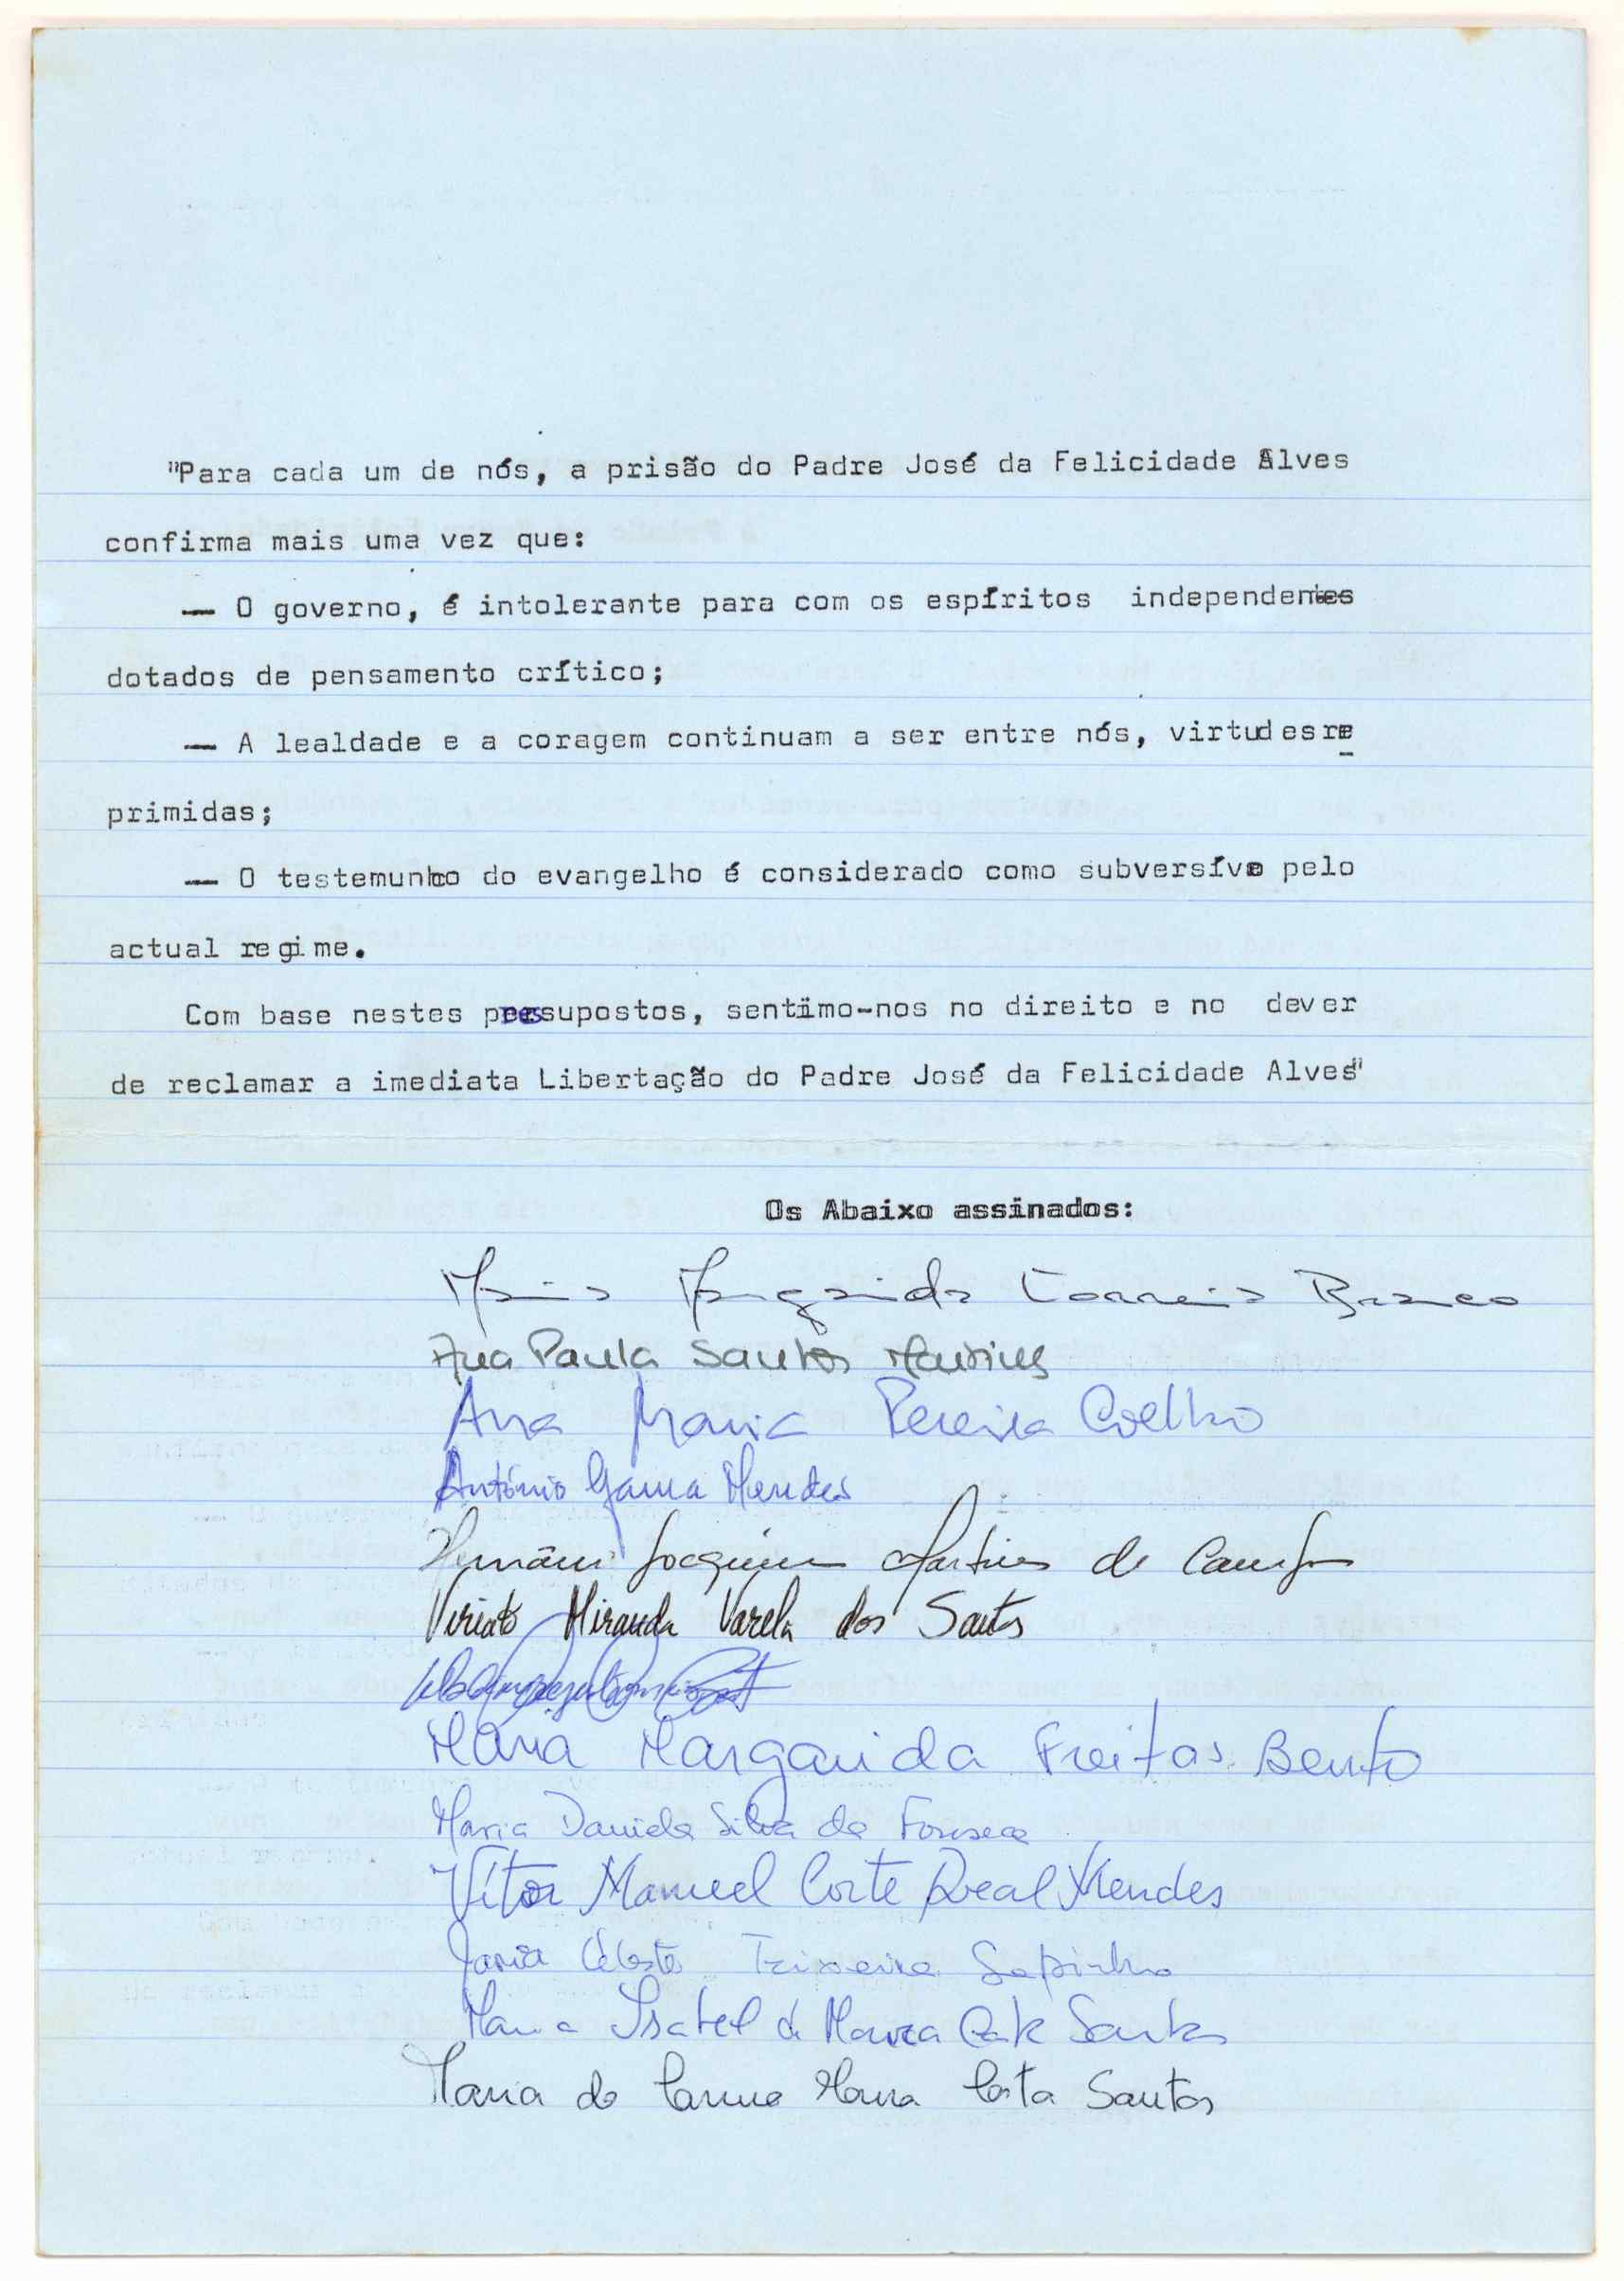 "Para cada um de nós, a prisão do Padre José da Felicidade Alves
confirma mais uma vez que:
— O governo, é intolerante para com os espíritos independentes
dotados de pensamento crítico;
— A lealdade e a coragem continuam a ser entre nós, virtudes re
primidas;
— O testemunho do evangelho é considerado como subversívo pelo
actual regime.
Com base nestes pressupostos, sentimo-nos no direito e no dever
de reclamar a imediata Libertação do Padre José da Felicidade Alves"
Os Abaixo assinados:
Maria Margarida Correia Branco
Ana Paula Santos Martins
Ana Maria Pereira Coelho
António Gama Mendes
Hernâni Joaquim Martins de Campos
Viriato Miranda Varela dos Santos
Maria Margarida Freitas Bento
Maria Daniela Silva da Fonseca
Vítor Manuel Corte Real Mendes
Maria Celeste Teixeira Sapinho
Maria Isabel de Santos
Maria do Carmo Costa Santos